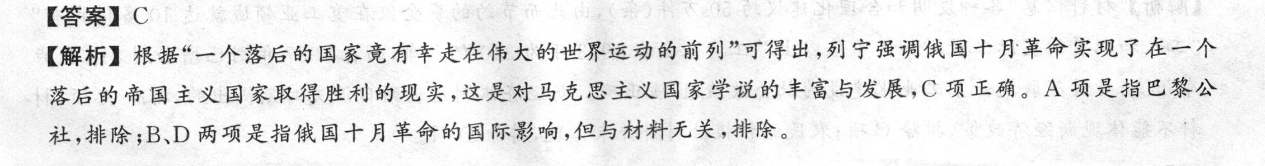 【答案】C
【解析】根据“一个落后的国家竟有幸走在伟大的世界运动的前列”可得出,列宁强调俄国十月革命实现了在一个
落后的帝国主义国家取得胜利的现实,这是对马克思主义国家学说的丰富与发展,C 项正确。A 项是指巴黎公
社,排除;B、D 两项是指俄国十月革命的国际影响,但与材料无关,排除。